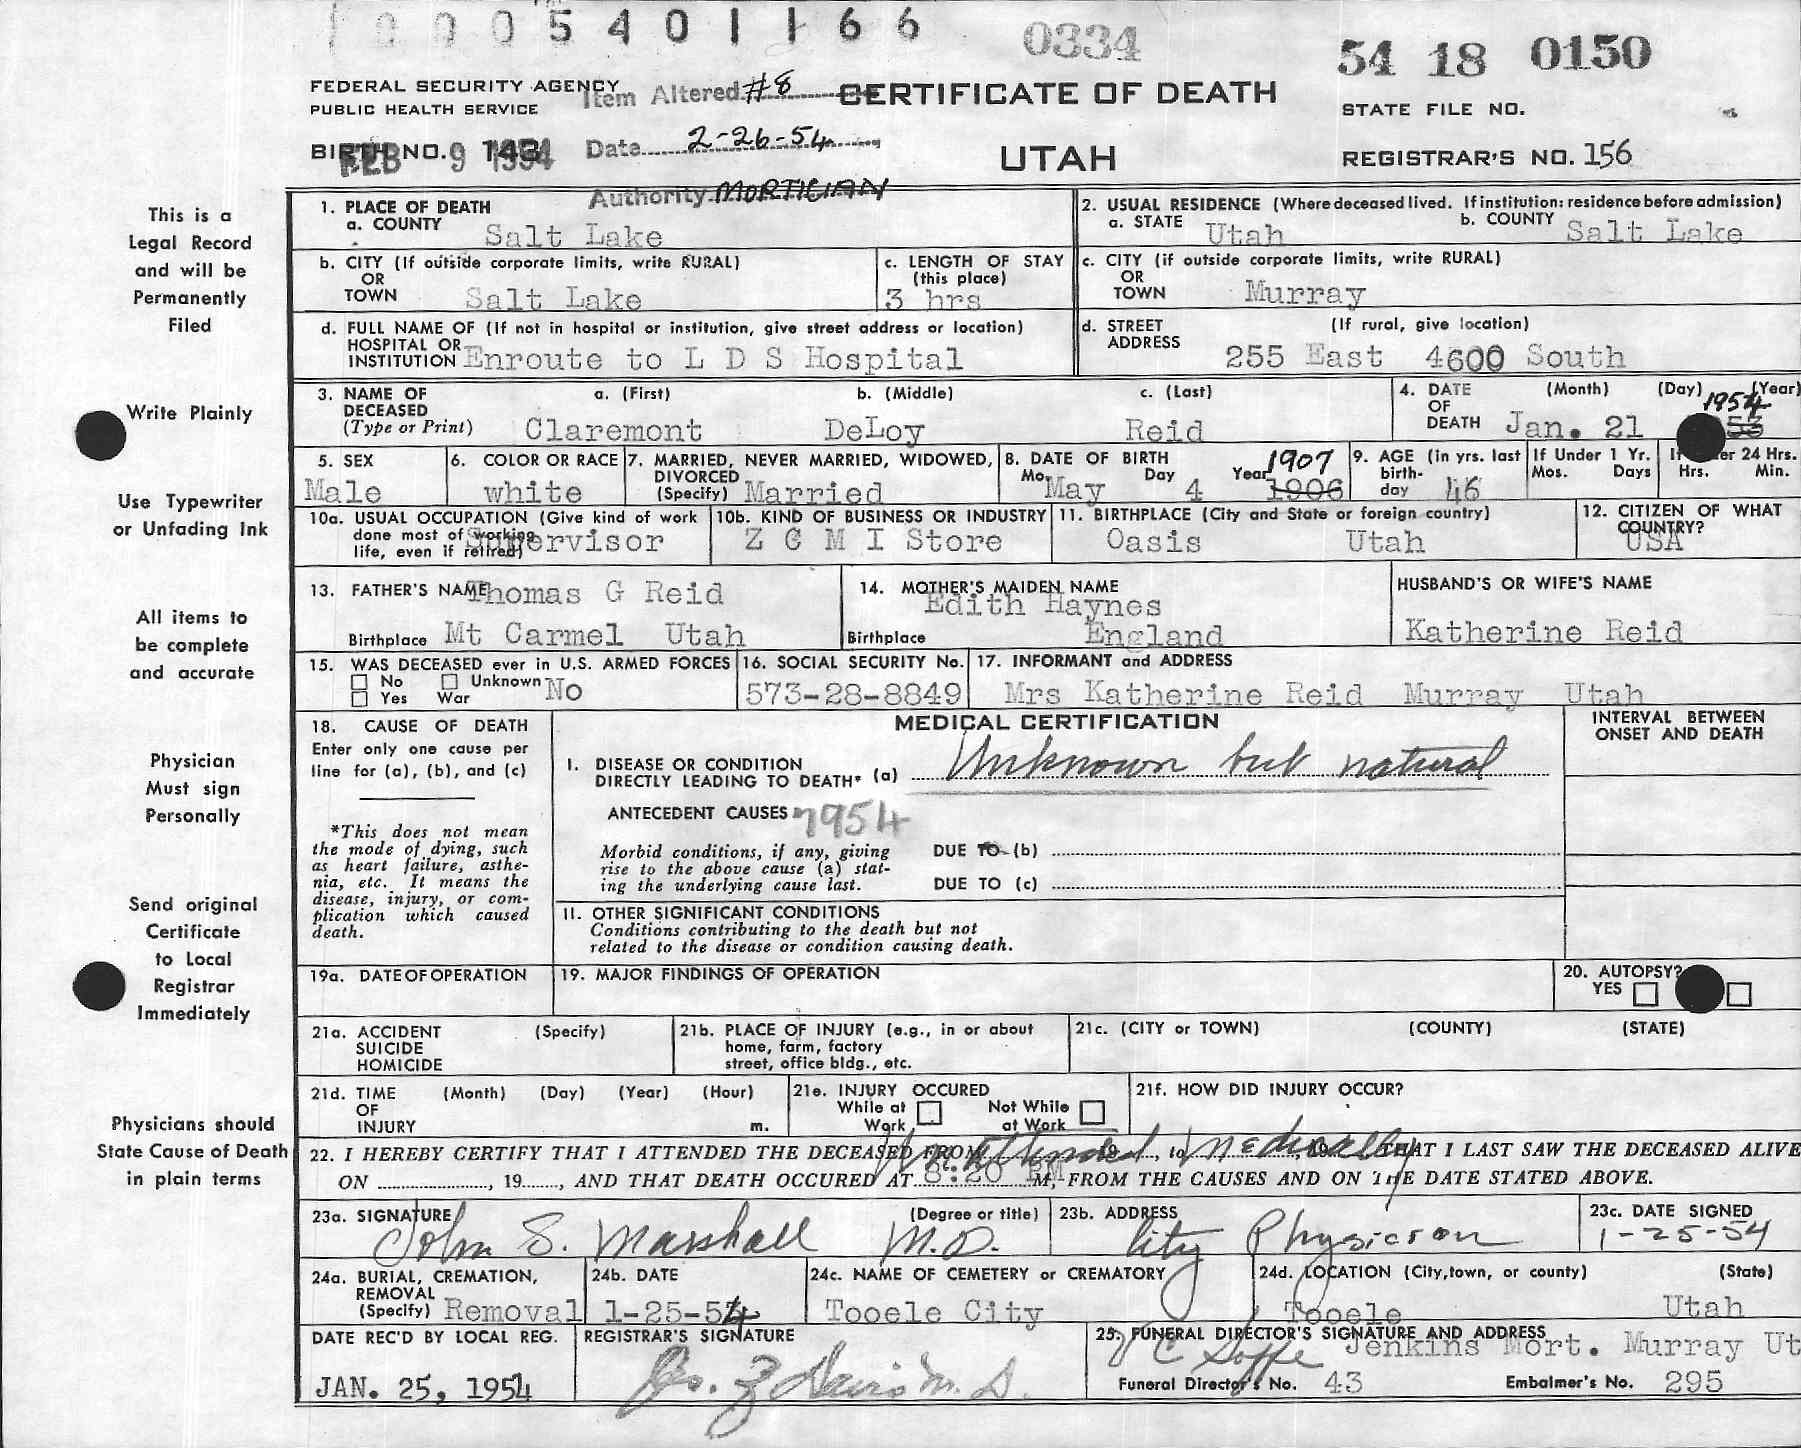 0005401166
0334
54 18 0150
FEDERAL SECURITY AGENCY
PUBLIC HEALTH SERVICE
Item Altered #8
CERTIFICATE OF DEATH
STATE FILE NO.
BIRTH NO. 143
FEB 9 1954
Date 2-26-54
UTAH
REGISTRAR'S NO. 156
Authority MORTICIAN
This is a
Legal Record
and will be
Permanently
Filed
Write Plainly
Use Typewriter
or Unfading Ink
All items to
be complete
and accurate
Physician
Must sign
Personally
Send original
Certificate
to Local
Registrar
Immediately
Physicians should
State Cause of Death
in plain terms
1. PLACE OF DEATH
a. COUNTY Salt Lake
2. USUAL RESIDENCE (Where deceased lived. If institution: residence before admission)
a. STATE Utah b. COUNTY Salt Lake
b. CITY (If outside corporate limits, write RURAL)
OR
TOWN Salt Lake
c. LENGTH OF STAY
(this place)
3 hrs
c. CITY (if outside corporate limits, write RURAL)
OR
TOWN Murray
d. FULL NAME OF (If not in hospital or institution, give street address or location)
HOSPITAL OR
INSTITUTION Enroute to L D S Hospital
d. STREET (If rural, give location)
ADDRESS
255 East 4600 South
3. NAME OF
DECEASED
(Type or Print)
a. (First) b. (Middle) c. (Last)
Claremont DeLoy Reid
4. DATE (Month) (Day) (Year)
OF
DEATH Jan. 21 1954 53
5. SEX
Male
6. COLOR OR RACE
white
7. MARRIED, NEVER MARRIED, WIDOWED,
DIVORCED
(Specify) Married
8. DATE OF BIRTH
Mo. May Day 4 Year 1907 1906
9. AGE (in yrs. last
birth-
day 46
If Under 1 Yr.
Mos. Days
24 Hrs.
Hrs. Min.
10a. USUAL OCCUPATION (Give kind of work
done most of working
life, even if retired) Supervisor
10b. KIND OF BUSINESS OR INDUSTRY
Z C M I Store
11. BIRTHPLACE (City and State or foreign country)
Oasis Utah
12. CITIZEN OF WHAT
COUNTRY?
USA
13. FATHER'S NAME Thomas G Reid
Birthplace Mt Carmel Utah
14. MOTHER'S MAIDEN NAME
Edith Haynes
Birthplace England
HUSBAND'S OR WIFE'S NAME
Katherine Reid
15. WAS DECEASED ever in U.S. ARMED FORCES
No Unknown No
Yes War
16. SOCIAL SECURITY No.
573-28-8849
17. INFORMANT and ADDRESS
Mrs Katherine Reid Murray Utah
18. CAUSE OF DEATH
Enter only one cause per
line for (a), (b), and (c)
*This does not mean
the mode of dying, such
as heart failure, asthe-
nia, etc. It means the
disease, injury, or com-
plication which caused
death.
MEDICAL CERTIFICATION
INTERVAL BETWEEN
ONSET AND DEATH
I. DISEASE OR CONDITION
DIRECTLY LEADING TO DEATH* (a) Unknown but natural
ANTECEDENT CAUSES 7954
Morbid conditions, if any, giving
rise to the above cause (a) stat-
ing the underlying cause last.
DUE TO (b)
DUE TO (c)
II. OTHER SIGNIFICANT CONDITIONS
Conditions contributing to the death but not
related to the disease or condition causing death.
19a. DATE OF OPERATION
19. MAJOR FINDINGS OF OPERATION
20. AUTOPSY?
YES
21a. ACCIDENT (Specify)
SUICIDE
HOMICIDE
21b. PLACE OF INJURY (e.g., in or about
home, farm, factory
street, office bldg., etc.
21c. (CITY or TOWN) (COUNTY) (STATE)
21d. TIME (Month) (Day) (Year) (Hour)
OF
INJURY m.
21e. INJURY OCCURED
While at Work
Not While at Work
21f. HOW DID INJURY OCCUR?
22. I HEREBY CERTIFY THAT I ATTENDED THE DECEASED FROM Unattended 19, to Medically, 19 THAT I LAST SAW THE DECEASED ALIVE
ON , 19 , AND THAT DEATH OCCURED AT 8:20 PM M, FROM THE CAUSES AND ON THE DATE STATED ABOVE.
23a. SIGNATURE (Degree or title)
John S. Marshall M.D.
23b. ADDRESS
City Physician
23c. DATE SIGNED
1-25-54
24a. BURIAL, CREMATION,
REMOVAL
(Specify) Removal
24b. DATE
1-25-54
24c. NAME OF CEMETERY or CREMATORY
Tooele City
24d. LOCATION (City, town, or county) (State)
Tooele Utah
DATE REC'D BY LOCAL REG.
JAN. 25, 1954
REGISTRAR'S SIGNATURE
M. D.
25. FUNERAL DIRECTOR'S SIGNATURE AND ADDRESS
Jenkins Mort. Murray Ut
Funeral Director's No. 43 Embalmer's No. 295